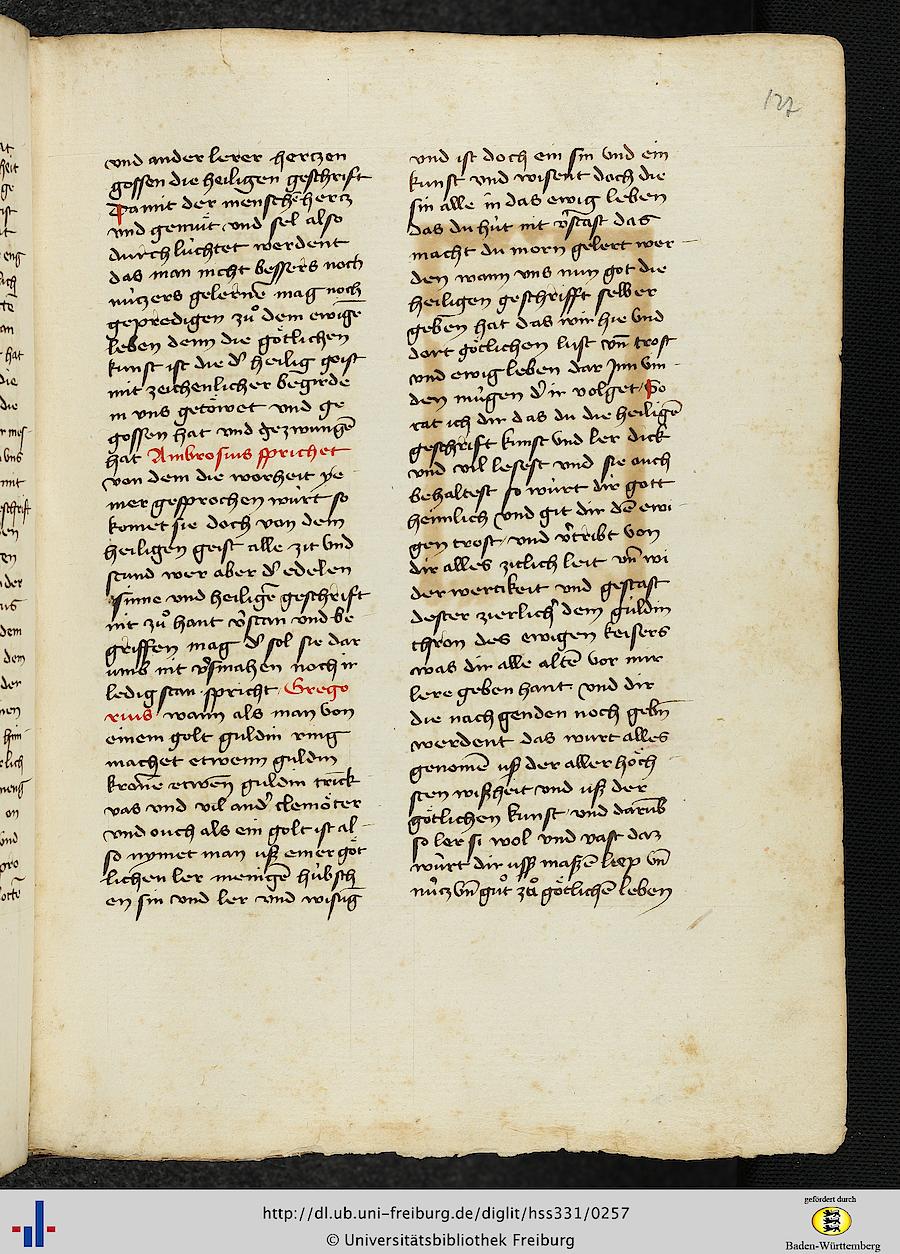 127
und ander lerer hertzen
gossen die heiligen geschrift
Damit der mensche hercz
und gemüt und sel also
durch lüchtet werdent
das man nicht bessers noch
nüczers gelernē mag noch
gepredigen zuͦ dem ewigē
leben denn die götlichen
kunst ist die dʼ heilig geist
mit zeichenlicher begirde
in uns getöwet und ge
gossen hat und gezwungē
hat Ambrosius sprichet
von dem die worheit ye
mer gesprochen würt so
komet sie doch von dem
heiligen geist alle zit und
stund wer aber dʼ edelen
sinne und heiligē geschrift
nit zuͦ hant vʼstan und be
griffen mag dʼ sol sie dar
umb nit vʼsmahen noch ir
ledig stan spricht Grego
rius wann als man von
einem golt guldin ring
machet etwenn guldin
kronē etwen guldin trinck
vas und vil andʼ clemöter
und ouch als ein golt ist al
so nymet man uß einer göt
lichen ler menigē hübsch
en sin und ler und wisūg
und ist doch ein sin und ein
kunst und wisent doch die
sin alle in das ewig leben
das du hüt nit vʼstast das
macht du morn gelert wer
den wann uns nun got die
heiligen geschrifft selber
geben hat das wir hie und
dort götlichen lust uñ trost
und ewig leben dar jnn vin
den mügen dʼ ir volget So
rat ich dir das du die heiligē
geschrift kunst und ler dick
und vil lesest und sie ouch
behaltest so würt dir gott
heimlich und git dir dē ewi
gen trost und vʼtribt von
dir alles zitlich leit uñ wi
der wertikeit und gestast
dester zierlichʼ dem guldin
thron des ewigen keisers
was dir alle altē vor mir
lere geben hant und dir
die nach genden noch gebñ
werdent das wurt alles
genomē uß der aller höch
sten wißheit und uß der
götlichen kunst und darūb
so ler si wol und vast daz
würt dir uß maßē uñ
nücz uñ guͦt zuͦ götlichē leben
http://dl.ub.uni-freiburg.de/diglit/hss331/0257
© Universitätsbibliothek Freiburg
gefördert durch
Baden-Württemberg